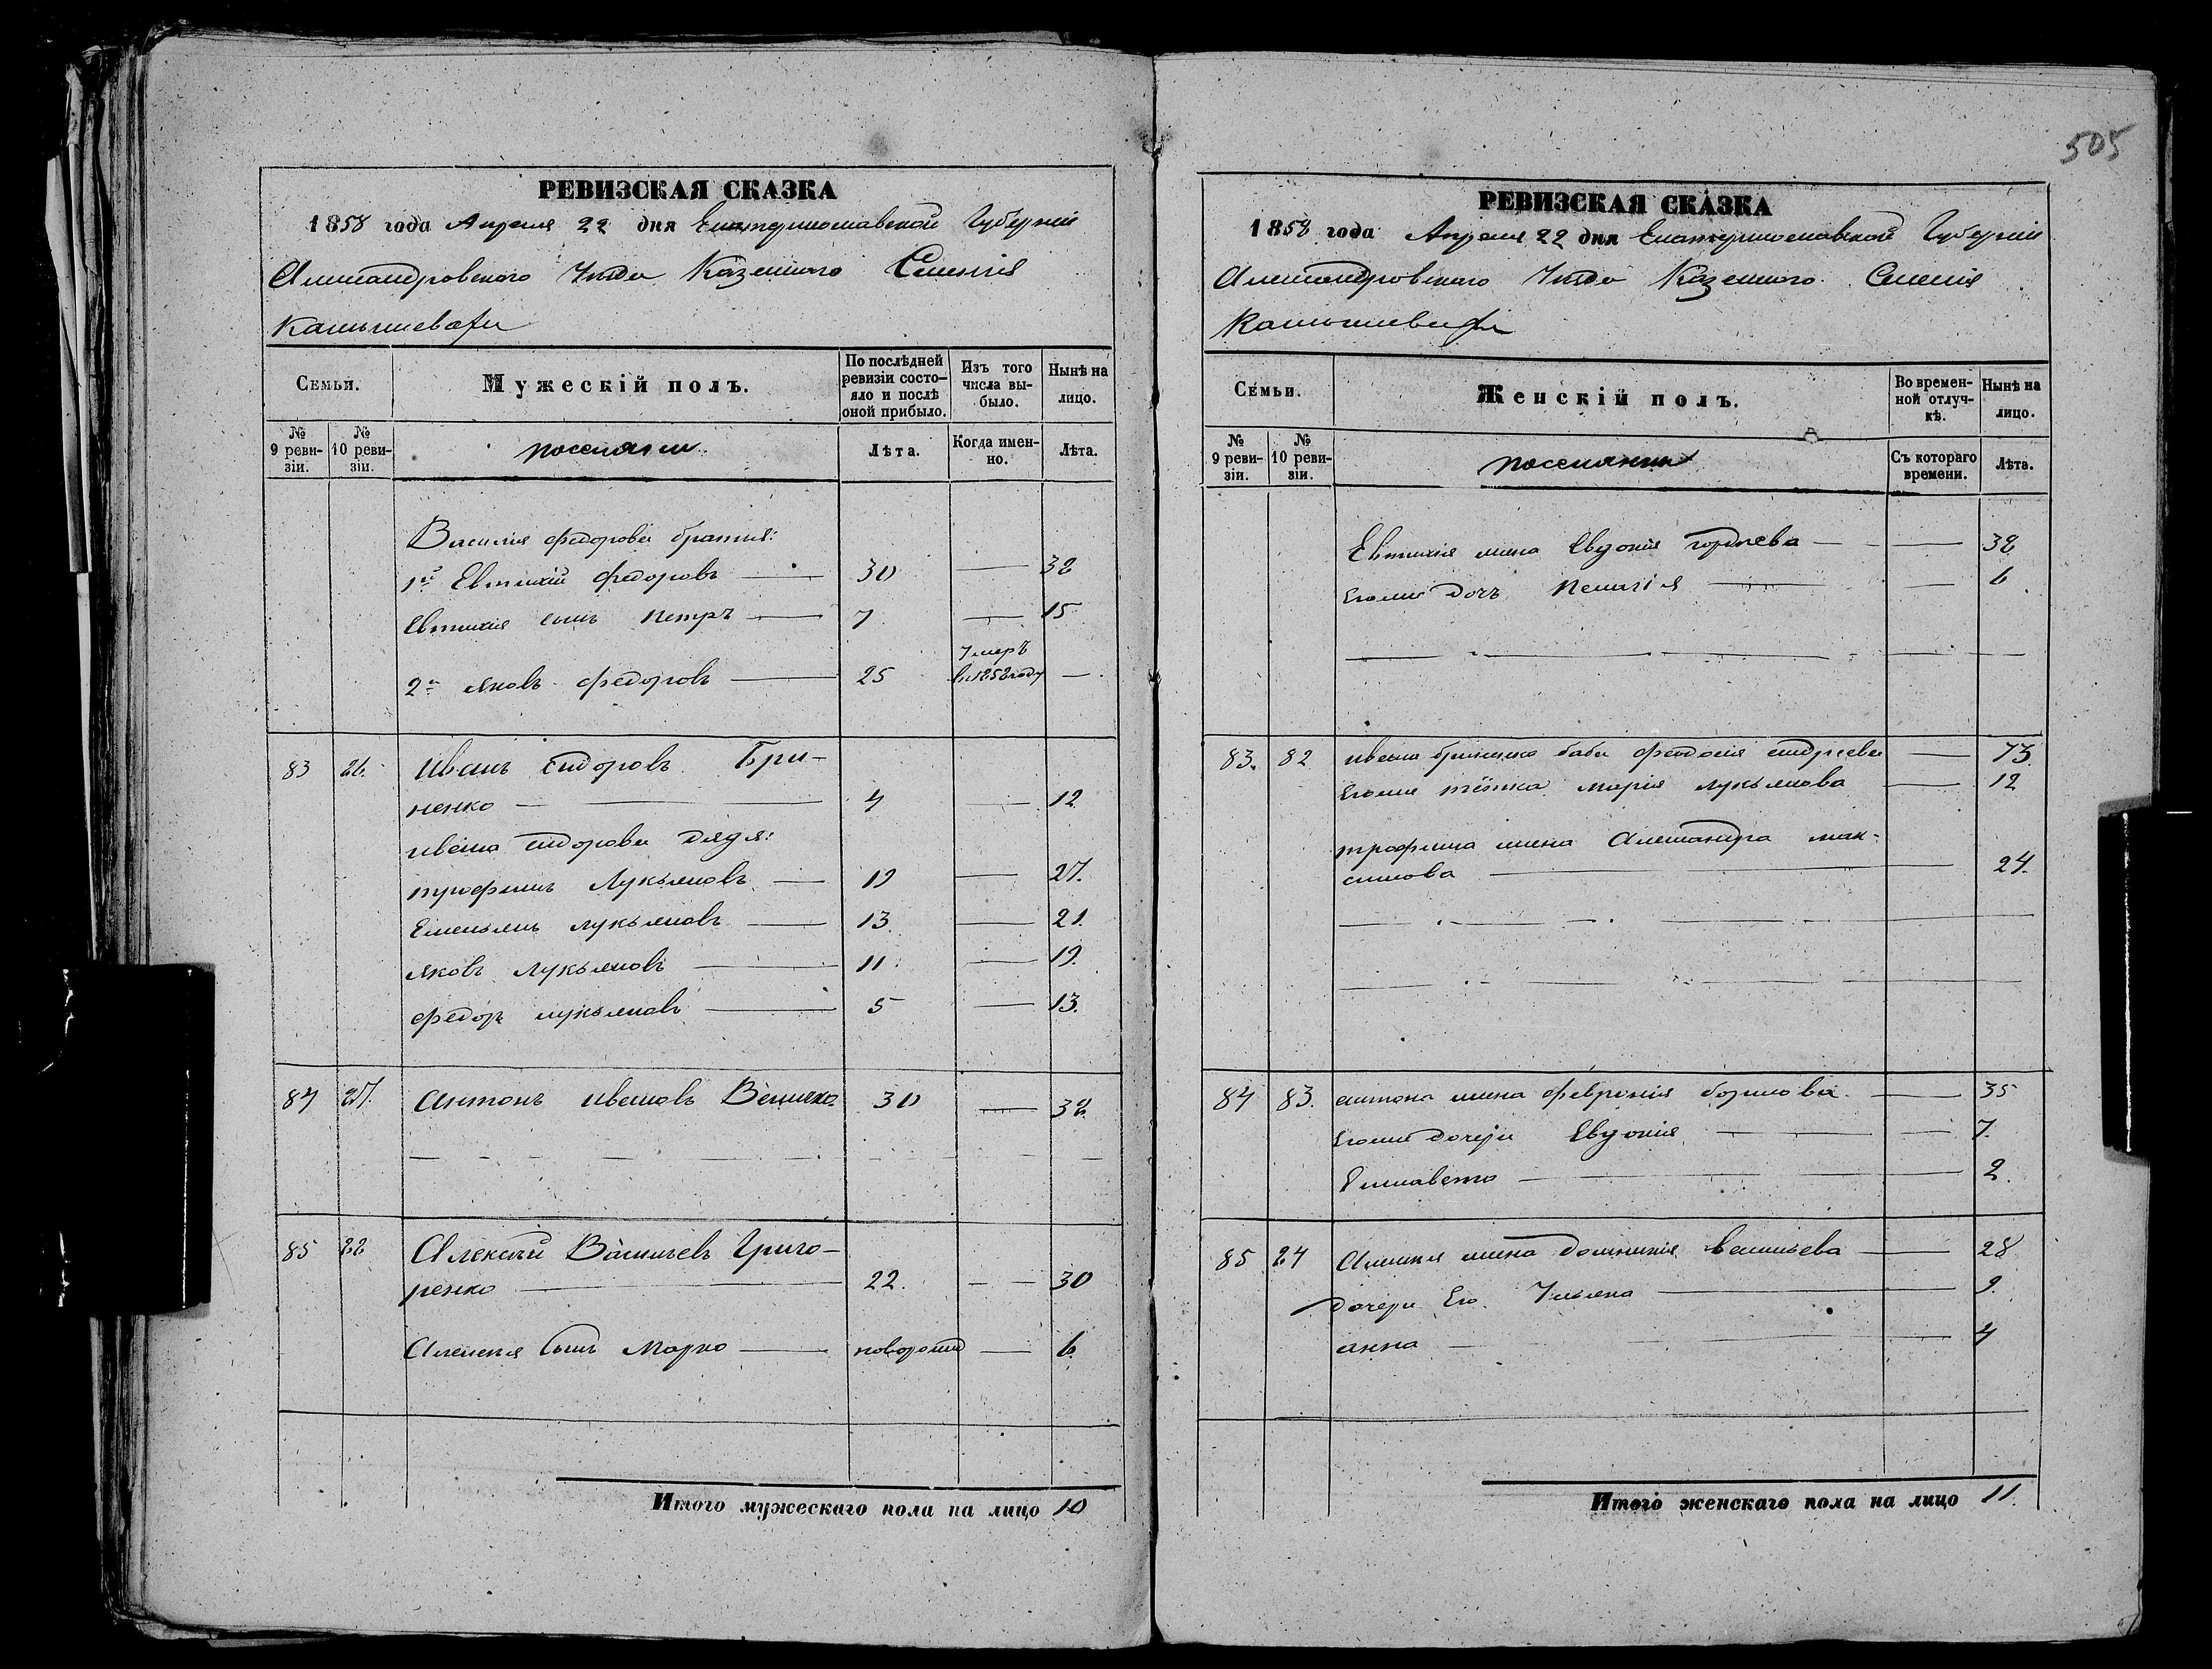 505
РЕВИЗСКАЯ СКАЗКА
1858 года Апреля 22 дня Екатеринославской Губерніи
Александровского Уезда Казенного Селенія
Камышевахи
Семьи.
Мужескій полъ.
По послѣдней ревизіи состояло и послѣ оной прибыло.
Изъ того числа выбыло.
Нынѣ на лицо.
№ 9 ревизіи.
№ 10 ревизіи.
поселяне
Лѣта.
Когда именно.
Лѣта.
Василия Федорова братия:
1й Евтихий Федоровъ 30 — 38
Евтихия сынъ Петръ 7 — 15
2й Яковъ Федоровъ 25 Умеръ в 1852 году —
83 Иванъ Сидоровъ Гри-
ненко 4 — 12
Ивана Сидорова дядя:
Трофимъ Лукьяновъ 19 — 27.
Емельянъ Лукьяновъ 13 — 21.
Яковъ Лукьяновъ 11 — 19.
Федоръ Лукьяновъ 5 — 13.
84 Антонъ Ивановъ Величко 30 — 38.
85 Алексѣй Васильевъ Григо-
ренко 22. — 30
Алексея сынъ Марко новорожд — 6.
Итого мужескаго пола на лицо 10
РЕВИЗСКАЯ СКАЗКА
1858 года Апреля 22 дня Екатеринославской Губерніи
Александровского Уезда Казенного Селенія
Камышевахи
Семьи.
Женскій полъ.
Во временной отлучкѣ.
Нынѣ на лицо.
№ 9 ревизіи.
№ 10 ревизіи.
поселянки
Съ котораго времени.
Лѣта.
Евтихия жена Евдокия Гордеева — 38
Егоже дочь Пелагія — 6
83. 82 Ивана Гриненка баба Феодосия Андреева — 73.
Егоже тётка Мария Лукьянова — 12
Трофима жена Александра Мак-
симова 24.
84 83. Антона жена Феврония — 35
Егоже дочери Евдокия — 7.
Елисавета — 2.
85 84 Алексея жена Домникия Васильева — 28
дочери Его Ульяна 9.
Анна — 4
Итого женскаго пола на лицо 11.